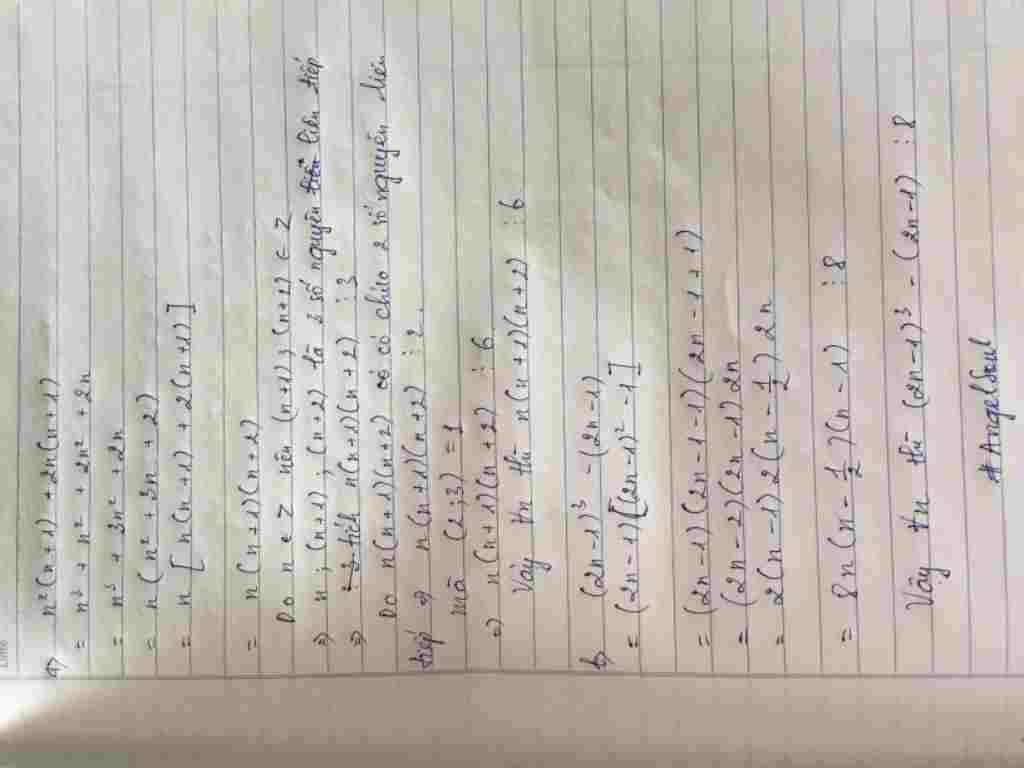 a) n²(n+1) + 2n(n+1)
= n³ + n² + 2n² + 2n
= n³ + 3n² + 2n
= n(n² + 3n + 2)
= n[n(n+1) + 2(n+1)]
= n(n+1)(n+2)
Do n ∈ Z nên (n+1); (n+2) ∈ Z
⇒ n; (n+1); (n+2) là 3 số nguyên liên tiếp
⇒ tích n(n+1)(n+2) ⋮ 3
Do n(n+1)(n+2) có chứa 2 số nguyên liên
tiếp ⇒ n(n+1)(n+2) ⋮ 2.
mà (2;3) = 1
⇒ n(n+1)(n+2) ⋮ 6
Vậy ∀n thì n(n+1)(n+2) ⋮ 6
b) (2n-1)³ - (2n-1)
= (2n-1)[(2n-1)² - 1]
= (2n-1)(2n-1-1)(2n-1+1)
= (2n-2)(2n-1)2n
= 2(n-1)2(n-1/2)2n
= 8n(n-1/2)(n-1) ⋮ 8
Vậy ∀n thì (2n-1)³ - (2n-1) ⋮ 8
#AngelSoul